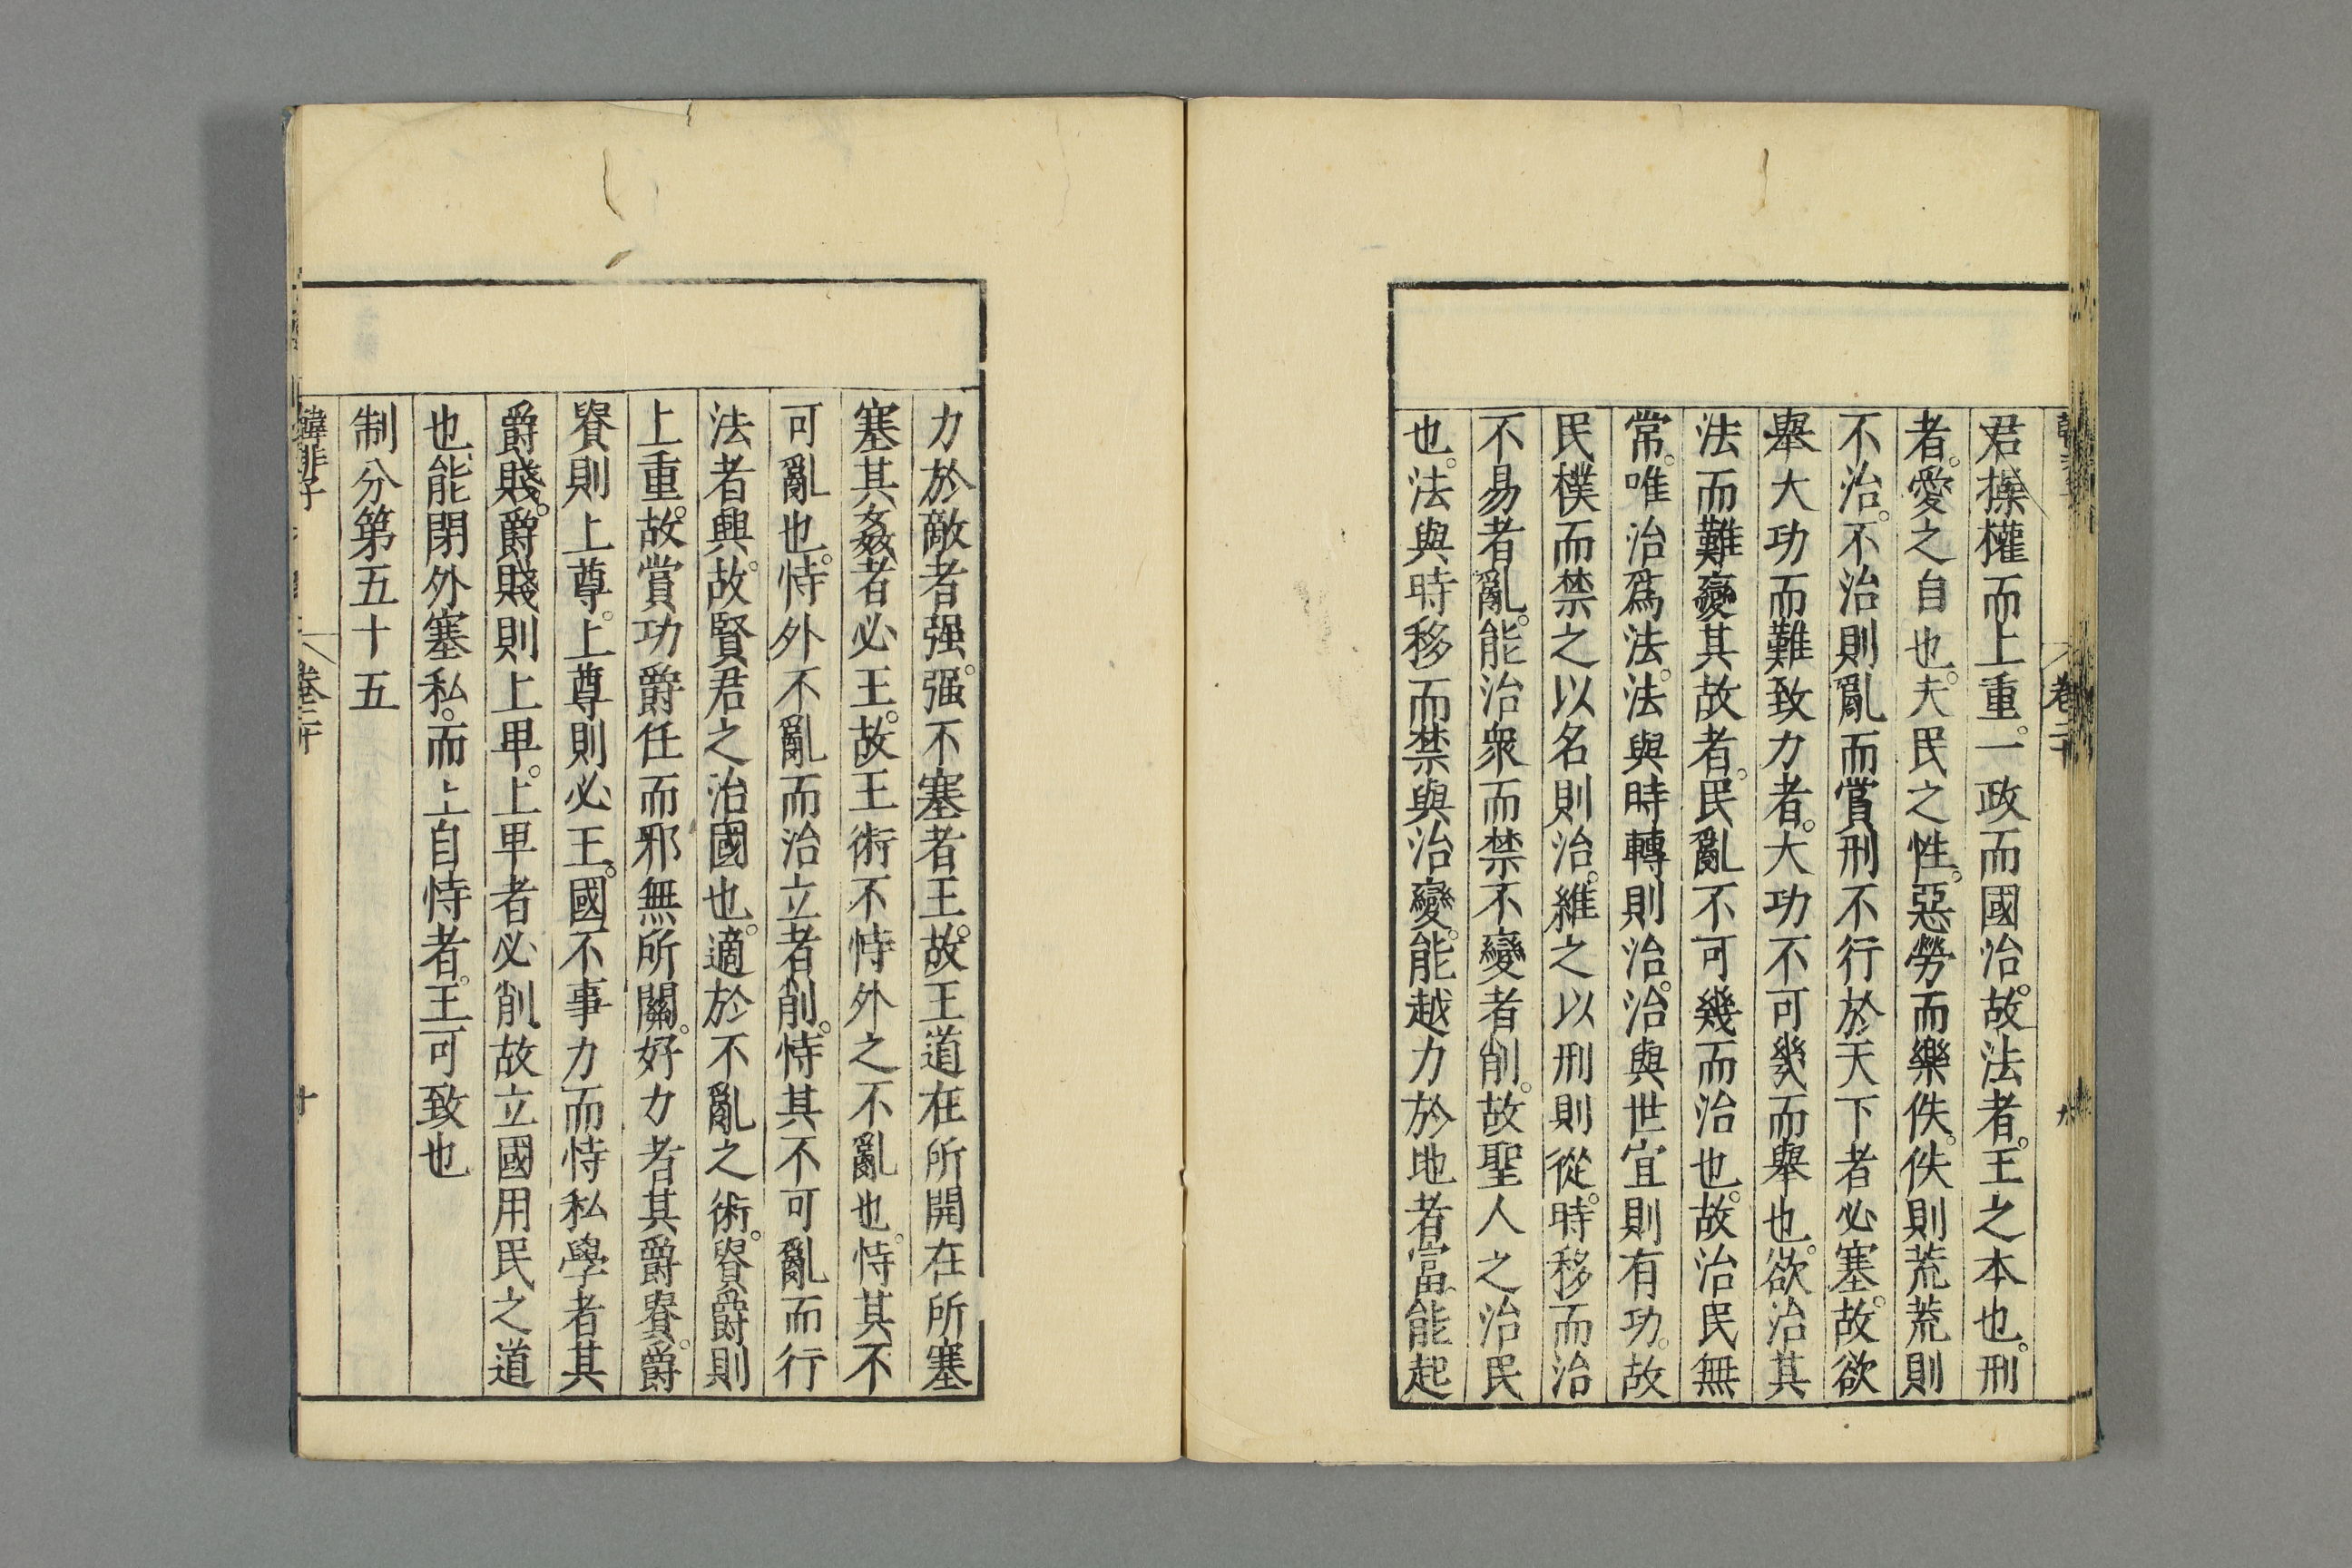 君操權而上重。一政而國治。故法者。王之本也。刑
者。愛之自也。夫民之性。惡勞而樂佚。佚則荒荒則
不治。不治則亂而賞刑不行於天下者必塞。故欲
舉大功而難致力者。大功不可幾而舉也。欲治其
法而難變其故者。民亂不可幾而治也。故治民無
常。唯治爲法。法與時轉則治。治與世宜則有功。故
民樸而禁之以名則治。維之以刑則從。時移而治
不易者亂。能治衆而禁不變者削。故聖人之治民
也。法與時移而禁與治變。能越力於地者富。能起
力於敵者强。强不塞者王。故王道在所開在所塞
塞其姦者必王。故王術不恃外之不亂也。恃其不
可亂也。恃外不亂而治立者削。恃其不可亂而行
法者興。故賢君之治國也。適於不亂之術。貴爵則
上重。故賞功爵任而邪無所關。好力者其爵貴。爵
貴則上尊。上尊則必王。國不事力而恃私學者其
爵賤。爵賤則上卑。上卑者必削故立國用民之道
也能閉外塞私。而上自恃者。王可致也
制分第五十五
韓非子
卷二十
十